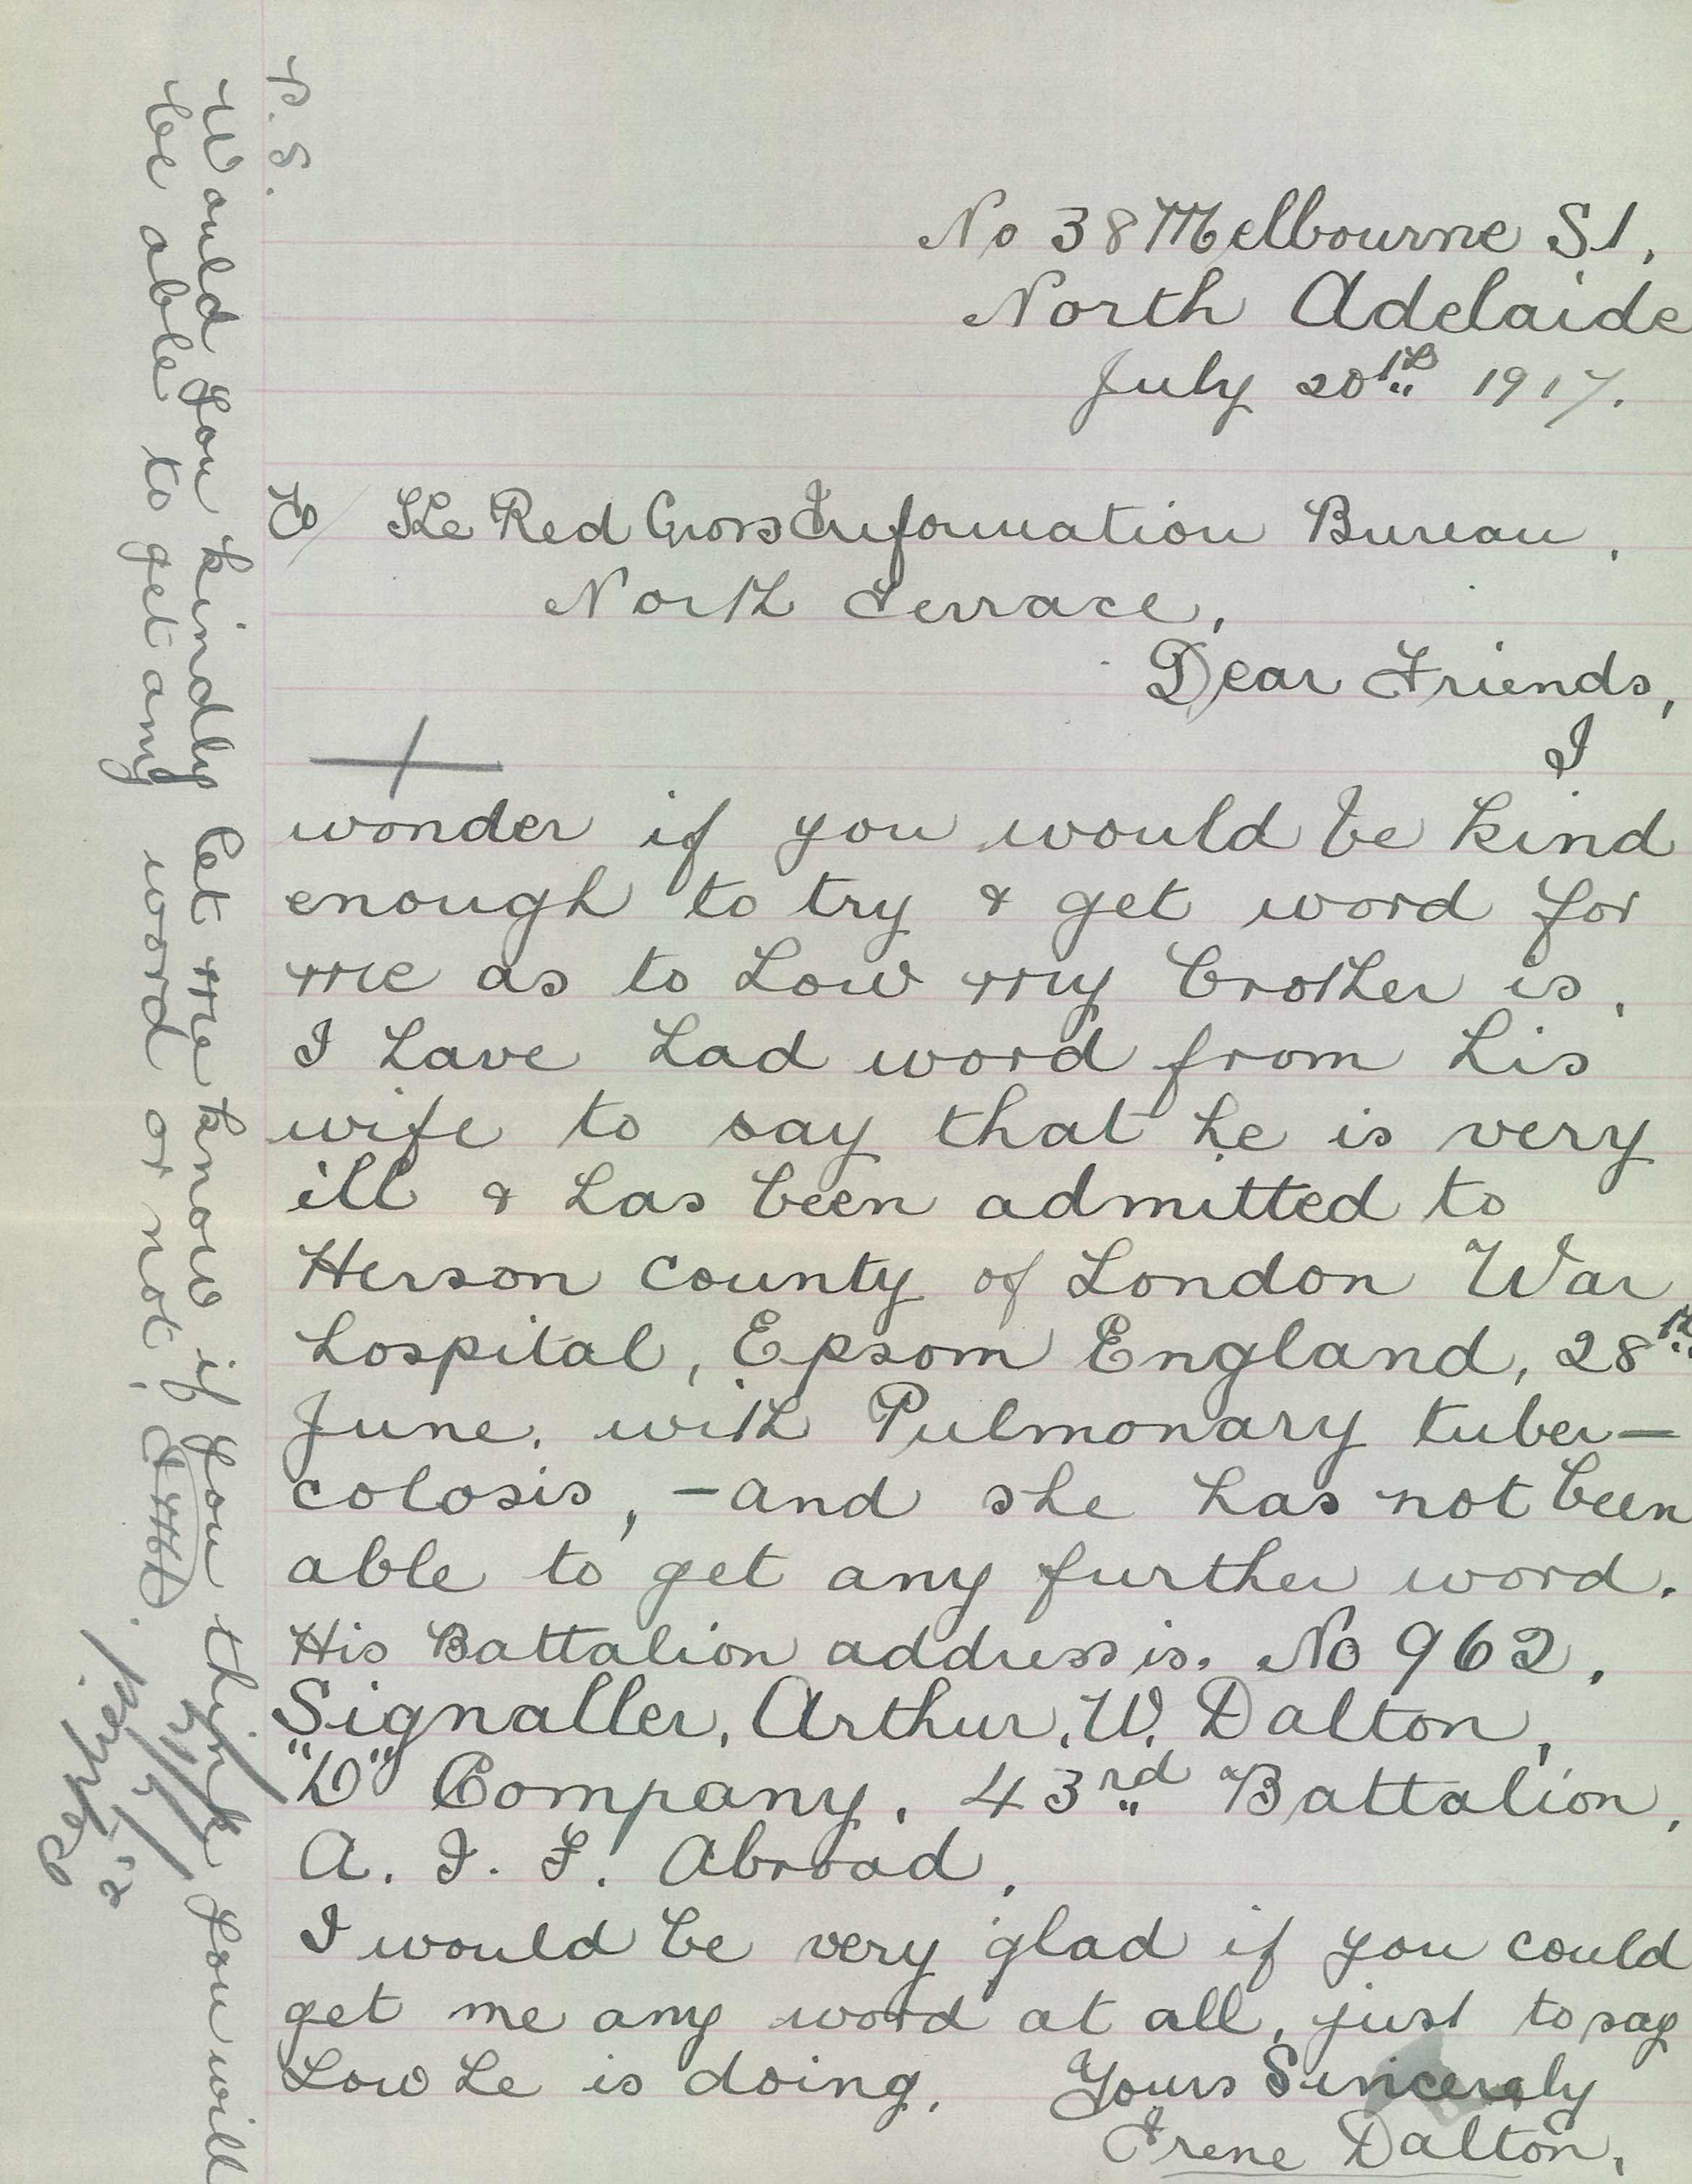 No 38 Melbourne St,
North Adelaide
July 20th 1917.
To/ The Red Cross Information Bureau,
North Terrace,
Dear Friends,
I
wonder if you would be kind
enough to try & get word for
me as to how my brother is,
I have had word from his
wife to say that he is very
ill & has been admitted to
Herson county of London War
hospital, Epsom England, 28th
June, with Pulmonary tuber-
colosis, - and she has not been
able to get any further word.
His Battalion address is. No 962,
Signaller, Arthur, W. Dalton,
"D" Company, 43rd Battalion,
A. I. F. Abroad,
I would be very glad if you could
get me any word at all, just to say
how he is doing, Yours Sincerely
Irene Dalton,
P. S.
Would you kindly let me know if you think you will
be able to get any word or not,
Replied